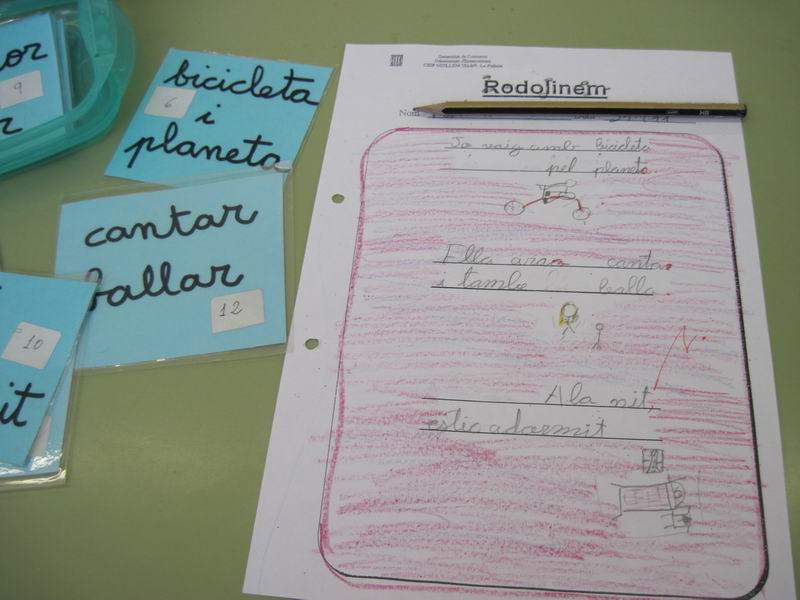 or
9
r
bicicleta
6
i
planeta
cantar
ballar
12
10
it
Generalitat de Catalunya
Departament d'Ensenyament
Rodolinem
Nom
HB
Jo vaig amb bicicleta
pel planeta.
Ella ara canta
i també balla
A la nit,
estic adormit